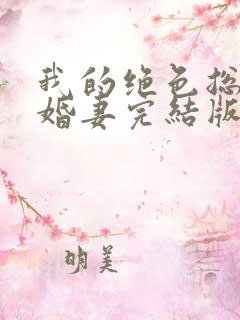 我的绝色总
婚妻完结版
明美